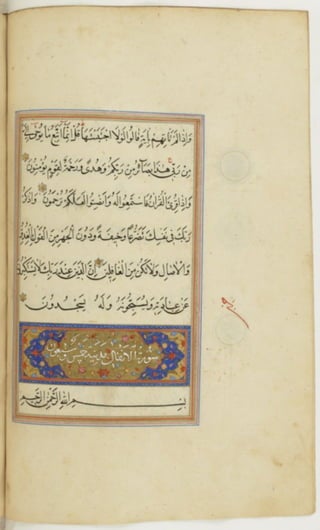 وَاِذَا لَمْ تَأْتِهِمْ بِاٰيَةٍ قَالُوا لَوْلَا اجْتَبَيْتَهَا قُلْ اِنَّمَا اَتَّبِعُ مَا يُوحٰى اِلَىَّ
مِنْ رَبِّى هٰذَا بَصَائِرُ مِنْ رَبِّكُمْ وَهُدًى وَرَحْمَةٌ لِقَوْمٍ يُؤْمِنُونَ
وَاِذَا قُرِئَ الْقُرْاٰنُ فَاسْتَمِعُوا لَهُ وَاَنْصِتُوا لَعَلَّكُمْ تُرْحَمُونَ وَاذْكُرْ
رَبَّكَ فِى نَفْسِكَ تَضَرُّعًا وَخِيفَةً وَدُونَ الْجَهْرِ مِنَ الْقَوْلِ بِالْغُدُوِّ
وَالْاٰصَالِ وَلَا تَكُنْ مِنَ الْغَافِلِينَ اِنَّ الَّذِينَ عِنْدَ رَبِّكَ لَا يَسْتَكْبِرُونَ
عَنْ عِبَادَتِهِ وَيُسَبِّحُونَهُ وَلَهُ يَسْجُدُونَ
سورة الانفال مدنية خمس
بِسْمِ اللّٰهِ الرَّحْمٰنِ الرَّحِيمِ